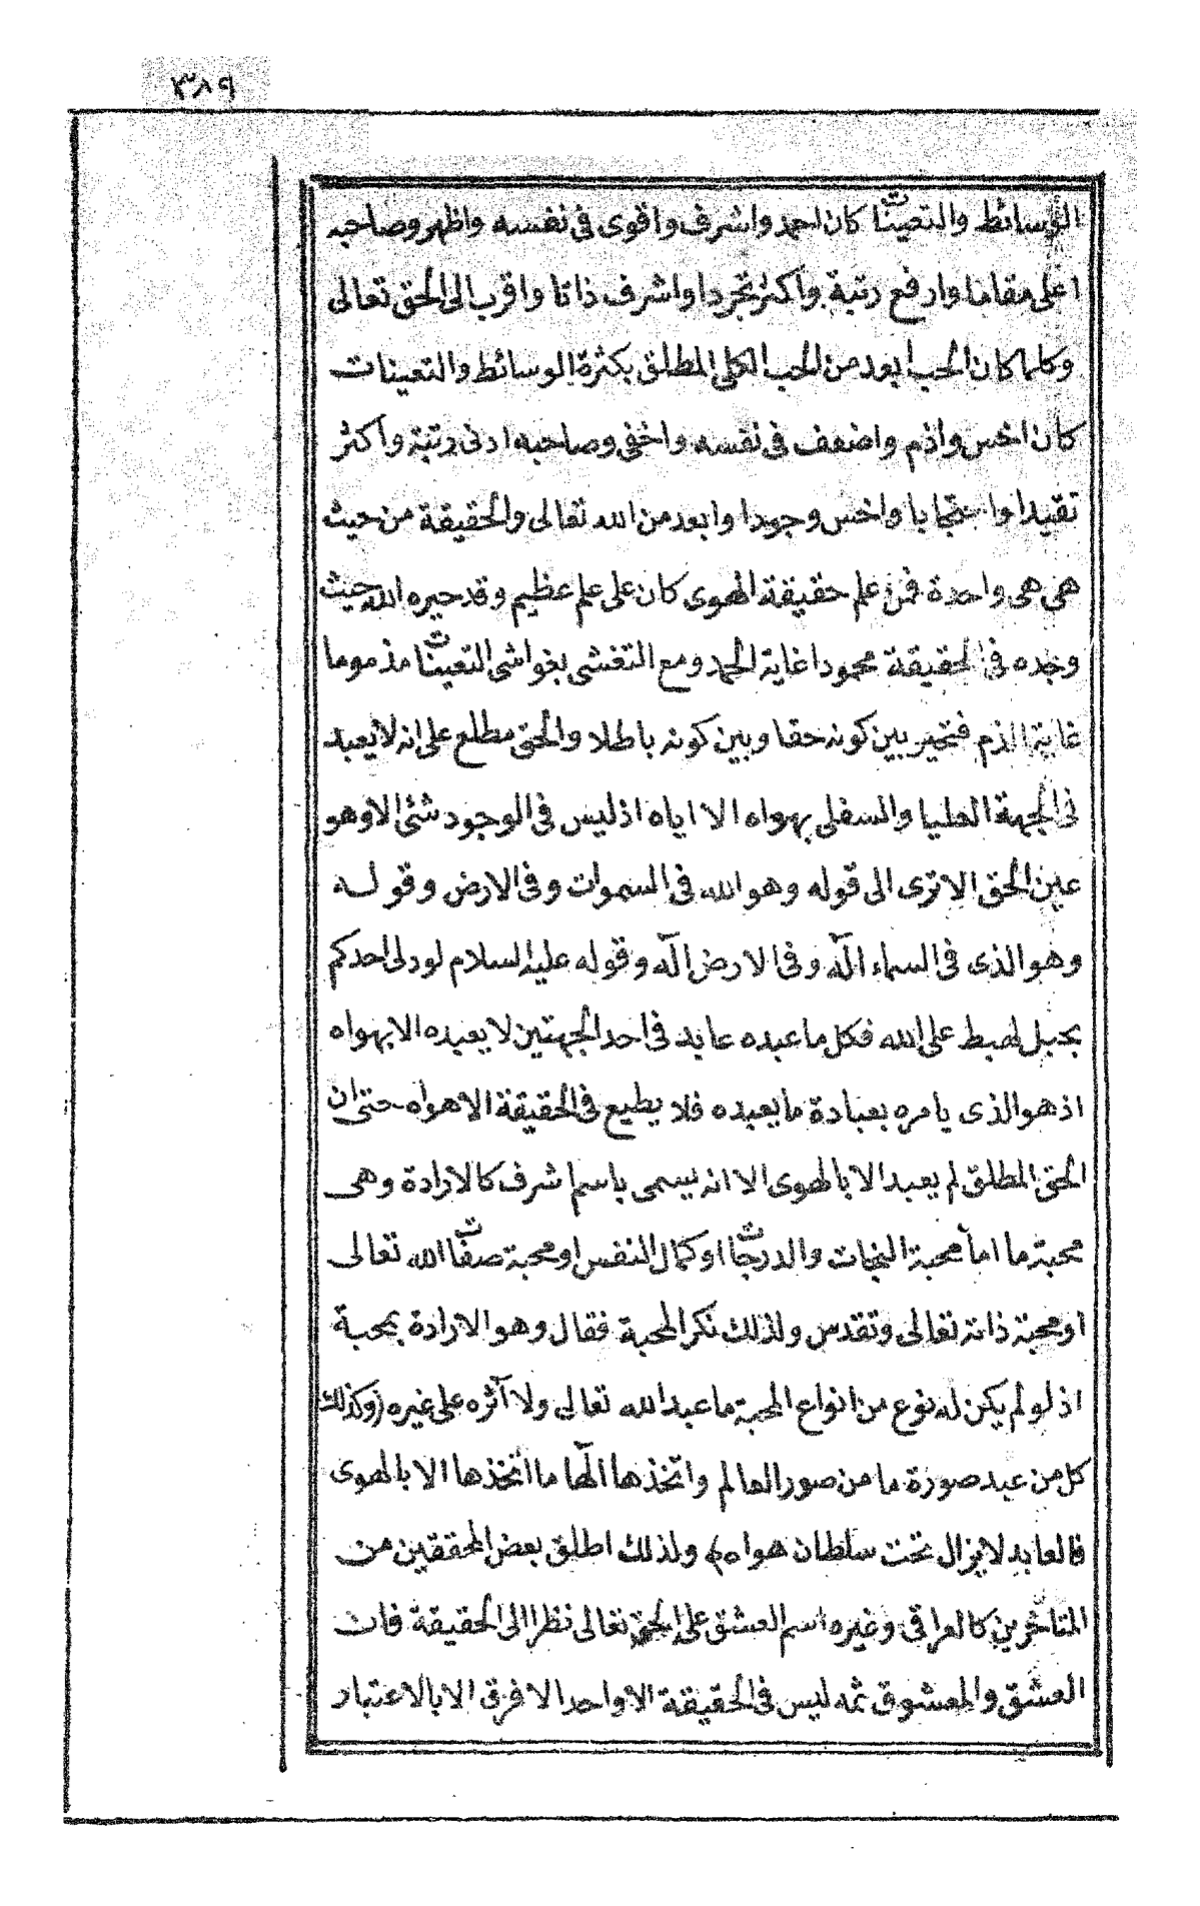 ٣٨٩
الوسائط والتعينات كان احمد واشرف واقوى فى نفسه واظهر وصاحبه
اعلى مقاما وارفع رتبة واكثر تجردا واشرف ذاتا واقرب الى الحق تعالى
وكلما كان الحب ابعد من الحب الكلى المطلق بكثرة الوسائط والتعينات
كان اخس واذم واضعف فى نفسه واخفى وصاحبه ادنى رتبة واكثر
تقيدا واحتجابا واخس وجودا وابعد من الله تعالى والحقيقة من حيث
هى هى واحدة فمن علم حقيقة الهوى كان على علم عظيم وقد حيره الله حيث
وجده فى الحقيقة محمودا غاية الحمد ومع التغشى بغواشى التعينات مذموما
غاية الذم فتحير بين كونه حقا وبين كونه باطلا والحق مطلع على انه لا يعبد
فى الجهة العليا والسفلى بهواه الا اياه اذ ليس فى الوجود شئ الا وهو
عين الحق الا ترى الى قوله وهو الله فى السموات وفى الارض وقوله
وهو الذى فى السماء اله وفى الارض اله وقوله عليه السلام لو دلى احدكم
بحبل لهبط على الله فكل ما عبده عابد فى احد الجهتين لا يعبده الا بهواه
اذ هو الذى يامره بعبادة ما يعبده فلا يطيع فى الحقيقة الا هواه حتى ان
الحق المطلق لم يعبد الا بالهوى الا انه يسمى باسم شرف كالارادة وهى
محبة ما اما محبة النجات والدرجات او كمال النفس او محبة صفات الله تعالى
او محبة ذاته تعالى وتقدس ولذلك نكر المحبة فقال وهو الارادة بمحبة
اذ لو لم يكن له نوع من انواع المحبة ما عبد الله تعالى ولا آثره على غيره (وكذلك
كل من عبد صورة ما من صور العالم واتخذها الها ما اتخذها الا بالهوى
فالعابد لا يزال تحت سلطان هواه) ولذلك اطلق بعض المحققين من
المتاخرين كالعراقى وغيره اسم العشق على الحق تعالى نظرا الى الحقيقة فان
العشق والمعشوق ثمه ليس فى الحقيقة الا واحدا لا فرق الا بالاعتبار